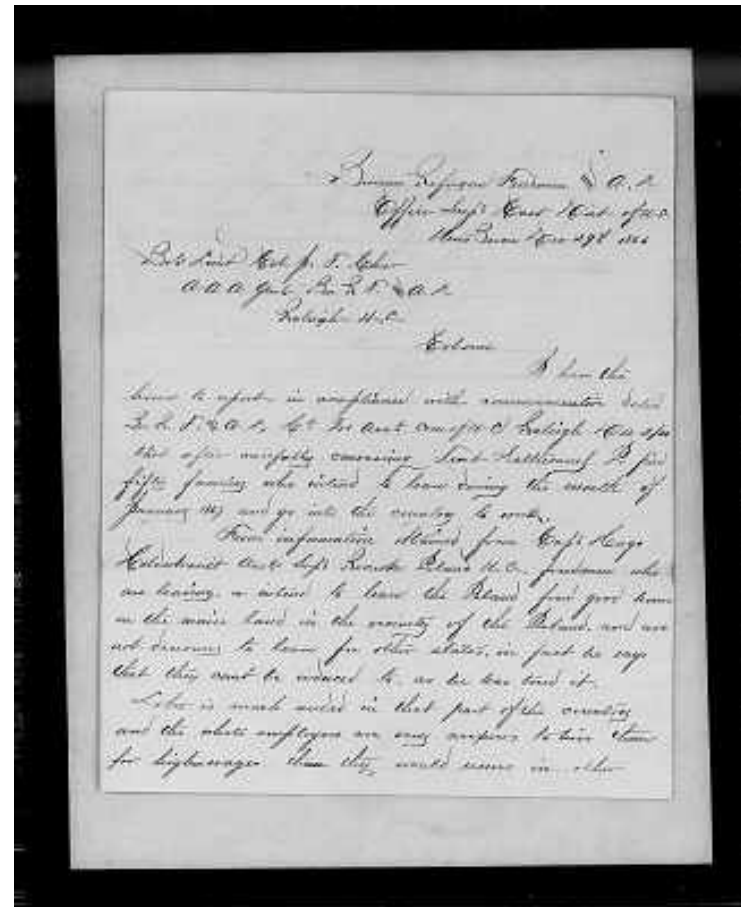 Bureau Refugees Freedmen & A. L.
Office Supt East Dist. of N.C.
New Berne Dec 29th 1866
Bvt Lieut Col. J. F. Chur
A A A Genl. Bu R F & A. L.
Raleigh N.C.
Colonel
I have the
honor to report in compliance with communication dated
B. R. F. & A. L, Raleigh
that after carefully canvassing I find
fifty families who intend to leave during the month of
January 1867 and go into the country to work.
From information obtained from Capt Hugo
Hillebrandt Asst Supt Roanoke Island N.C. freedmen who
are leaving or intend to leave the Island find good homes
on the main land in the vicinity of the Island, and are
not desirous to leave for other states, in fact he says
that they can't be induced to, as he has tried it.
Labor is much needed in that part of the country
and the white employers are very anxious to hire them
for higher wages than they would receive in other